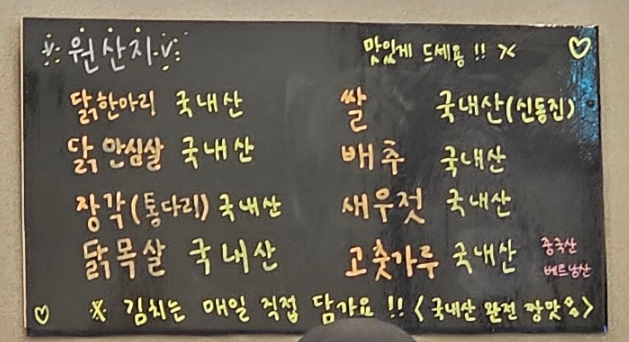 원산지
맛있게 드세용!!
닭한마리 국내산
닭안심살 국내산
장각(통다리) 국내산
닭목살 국내산
쌀 국내산(신동진)
배추 국내산
새우젓 국내산
고춧가루 국내산 중국산
베트남산
※ 김치는 매일 직접 담가요!! <국내산 완전 짱맛